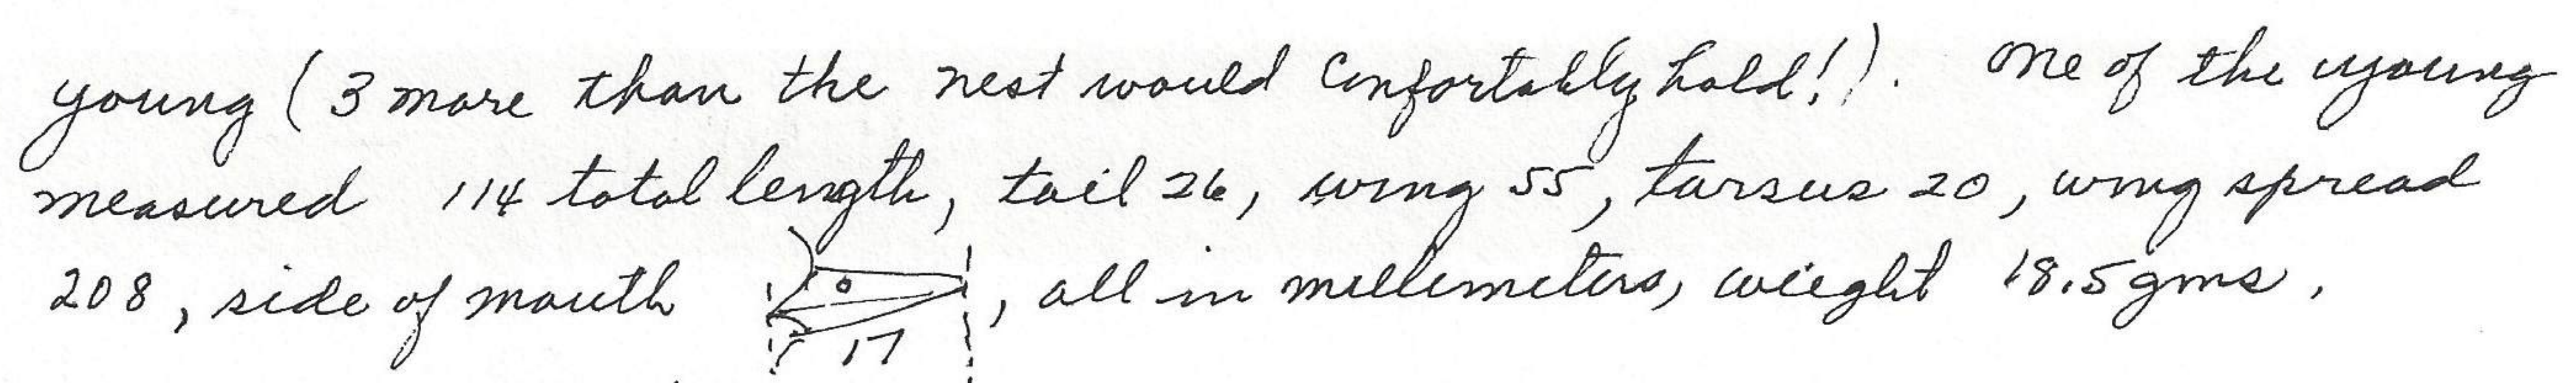 young (3 more than the nest would comfortably hold!). One of the young
measured 114 total length, tail 26, wing 55, tarsus 20, wing spread
208, side of mouth 17, all in millimeters, weight 18.5 gms.